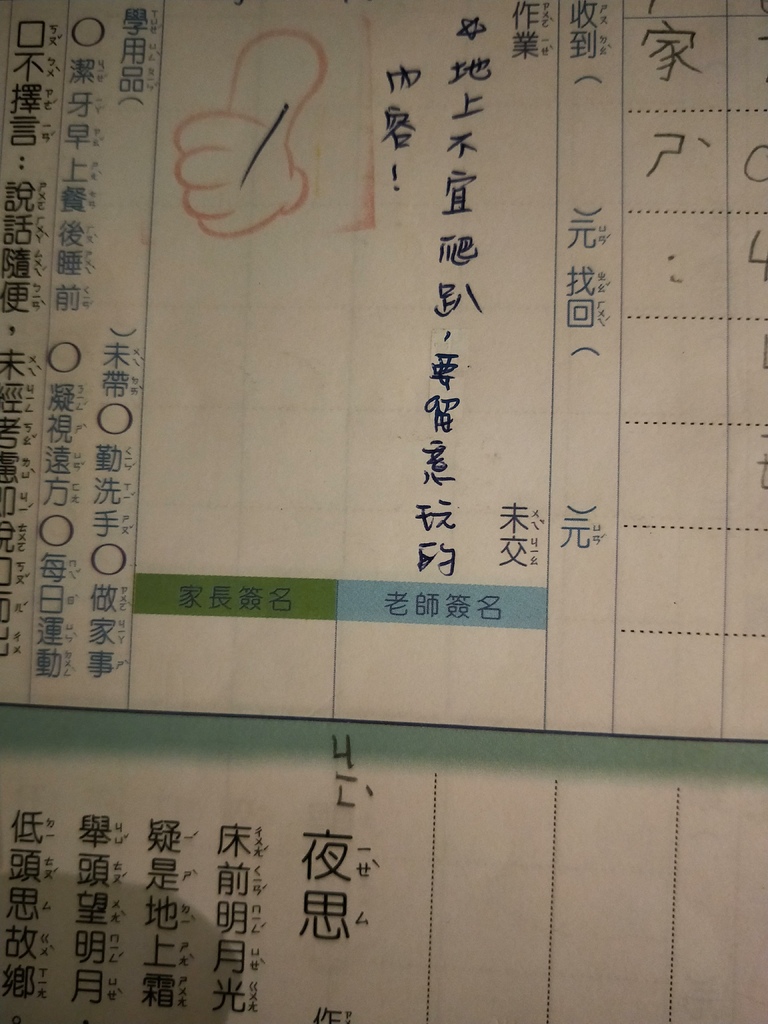 家
ㄕˋ
:
收到（　）元 找回（　）元
作業
未交
☆地上不宜爬趴，要留意玩的
內容！
老師簽名
家長簽名
學用品（　）未帶 ○勤洗手 ○做家事
○潔牙早上餐後睡前 ○凝視遠方 ○每日運動
口不擇言：說話隨便，未經考慮即脫口而出
ㄐㄧㄥˋ
夜思
床前明月光
疑是地上霜
舉頭望明月，
低頭思故鄉。